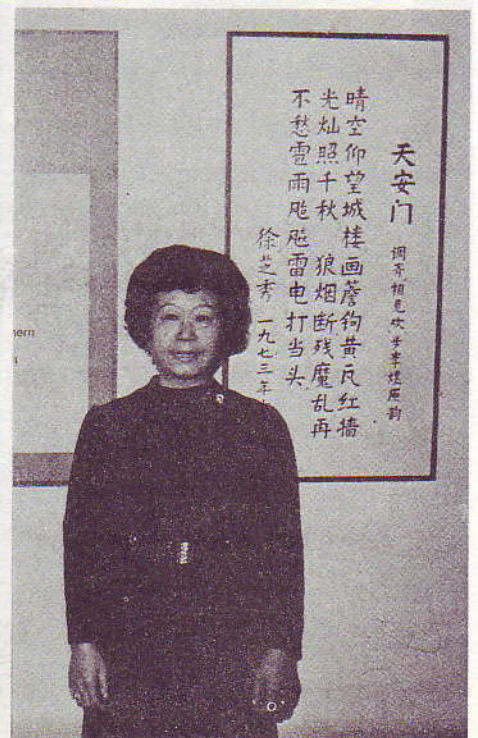 天安门
调寄相見欢 步李煜原韵
晴空仰望城楼画簷钩黄瓦红墙
光灿照千秋 狼烟断残魔乱再
不愁雹雨雷电打当头
徐芝秀 一九七三年
hern